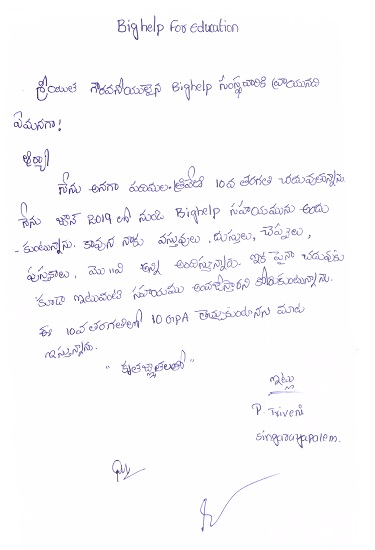 Bighelp For education
శ్రీయుత గౌరవనీయులైన Bighelp సంస్థవారికి వ్రాయునది
ఏమనగా!
ఆర్యా
నేను అనగా త్రివేణి 10వ తరగతి చదువుతున్నాను
నేను జూన్ 2019 లో నుండి Bighelp సహాయమును అందు
- కుంటున్నాను. కావున నాకు వస్తువులు, దుస్తులు, చెప్పులు,
పుస్తకాలు, మొ॥నవి అన్నీ అందిస్తున్నారు. ఇక పైనా చదువుకు
కూడా ఇటువంటి సహాయము అందజేస్తారని కోరుకుంటున్నాను.
ఈ 10వ తరగతిలో 10 GPA తెచ్చుకుంటానని మాట
ఇస్తున్నాను.
" కృతజ్ఞతలతో "
ఇట్లు
P. Triveni
Singarayapalem.